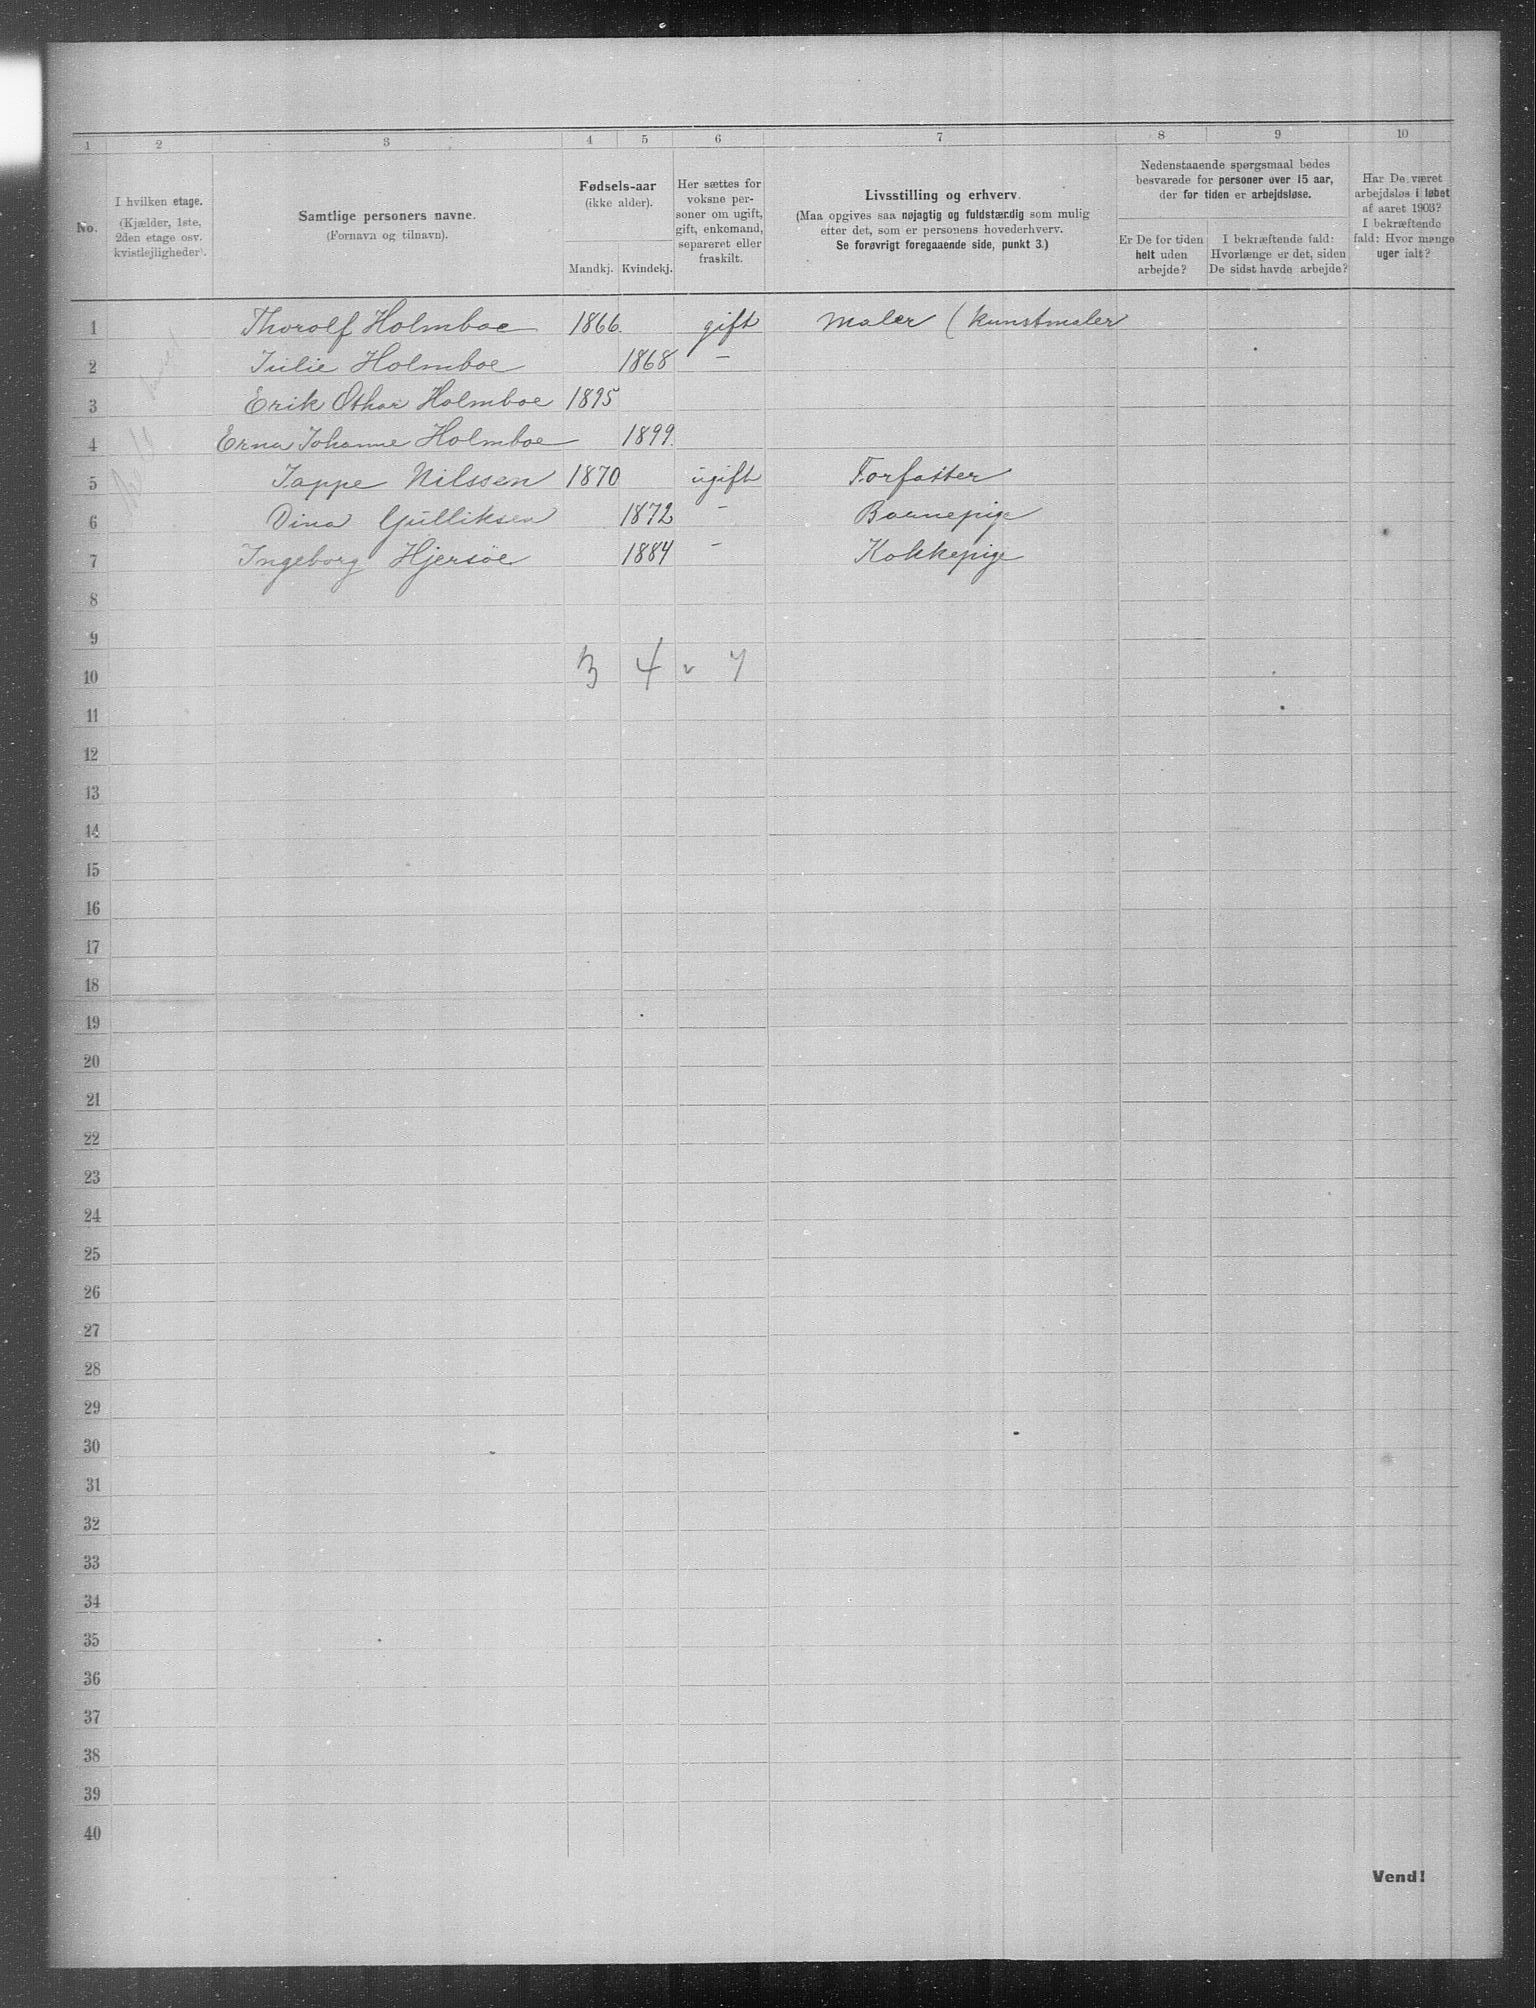 1 2 3 4 5 6 7 8 9 10
No.
I hvilken etage.
(Kjælder, 1ste, 2den etage osv. kvistlejligheder).
Samtlige personers navne.
(Fornavn og tilnavn).
Fødsels-aar
(ikke alder).
Mandkj. Kvindekj.
Her sættes for voksne personer om ugift, gift, enkemand, separeret eller fraskilt.
Livsstilling og erhverv.
(Maa opgives saa nøjagtig og fuldstærdig som mulig efter det, som er personens hovederhverv.
Se forøvrigt foregaaende side, punkt 3.)
Nedenstaaende spørgsmaal bedes besvarede for personer over 15 aar, der for tiden er arbejdsløse.
Er De for tiden helt uden arbejde?
I bekræftende fald: Hvorlænge er det, siden De sidst havde arbejde?
Har De været arbejdsløs i løbet af aaret 1903? I bekræftende fald: Hvor mange uger ialt?
1 Thorolf Holmboe 1866. gift Maler (kunstmaler
2 Julie Holmboe 1868 –
3 Erik Othar Holmboe 1895
4 Erna Johanne Holmboe 1899.
5 Jappe Nilssen 1870 ugift Forfatter
6 Dina Gulliksen 1872 – Barnepige
7 Ingeborg Hjersöe 1884 – Kokkepige
8
9
10 3 4 7
11
12
13
14
15
16
17
18
19
20
21
22
23
24
25
26
27
28
29
30
31
32
33
34
35
36
37
38
39
40
Vend!